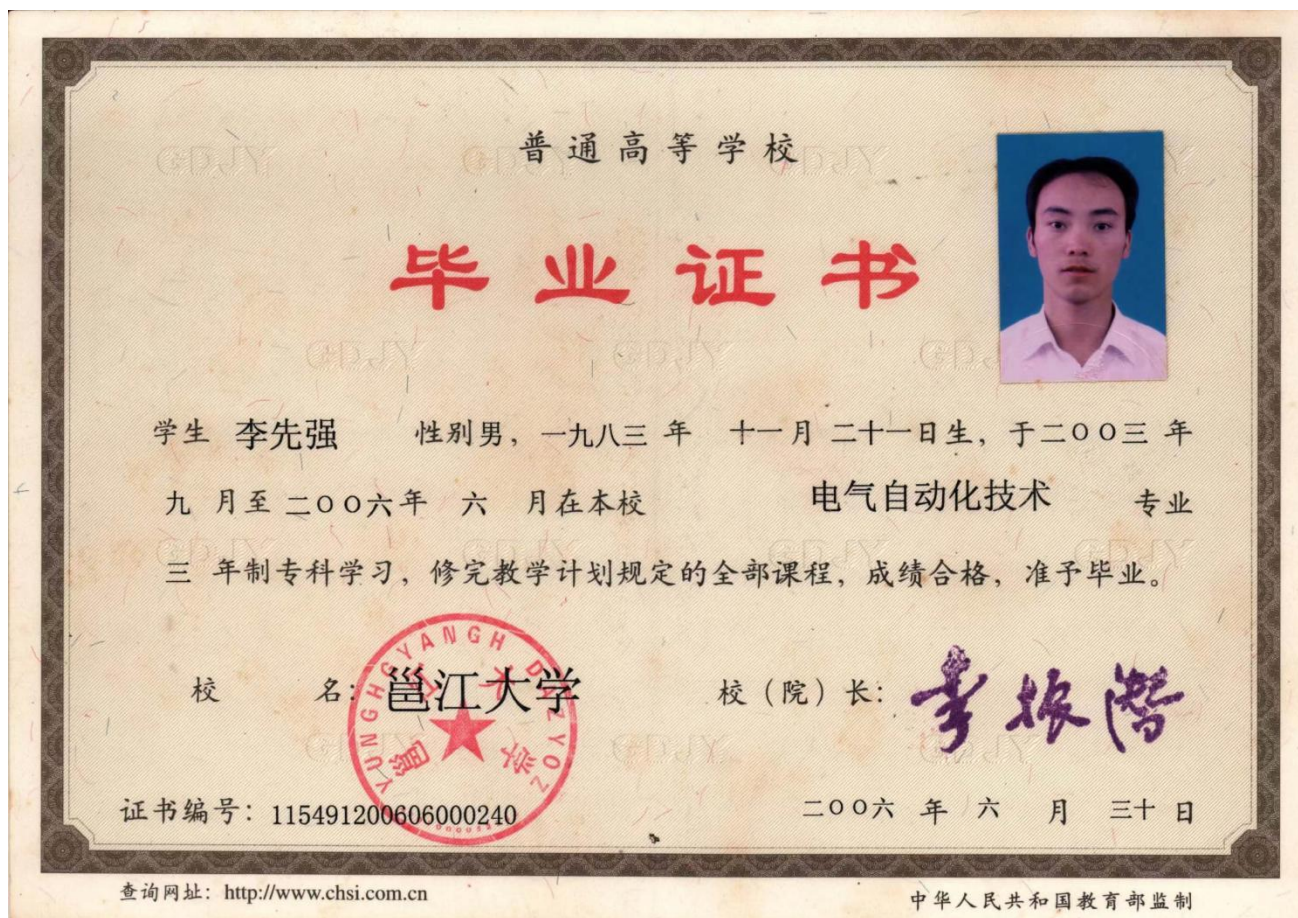 普通高等学校
毕业证书
学生 李先强 性别男，一九八三 年 十一月 二十一日生，于二〇〇三 年
九 月至 二〇〇六年 六 月在本校 电气自动化技术 专业
三 年制专科学习，修完教学计划规定的全部课程，成绩合格，准予毕业。
校 名：邕江大学 校（院）长：李振潛
YUNGHGYANGH DAZYOZ
邕江大学
证书编号：115491200606000240 二〇〇六 年 六 月 三十 日
查询网址：http://www.chsi.com.cn 中华人民共和国教育部监制